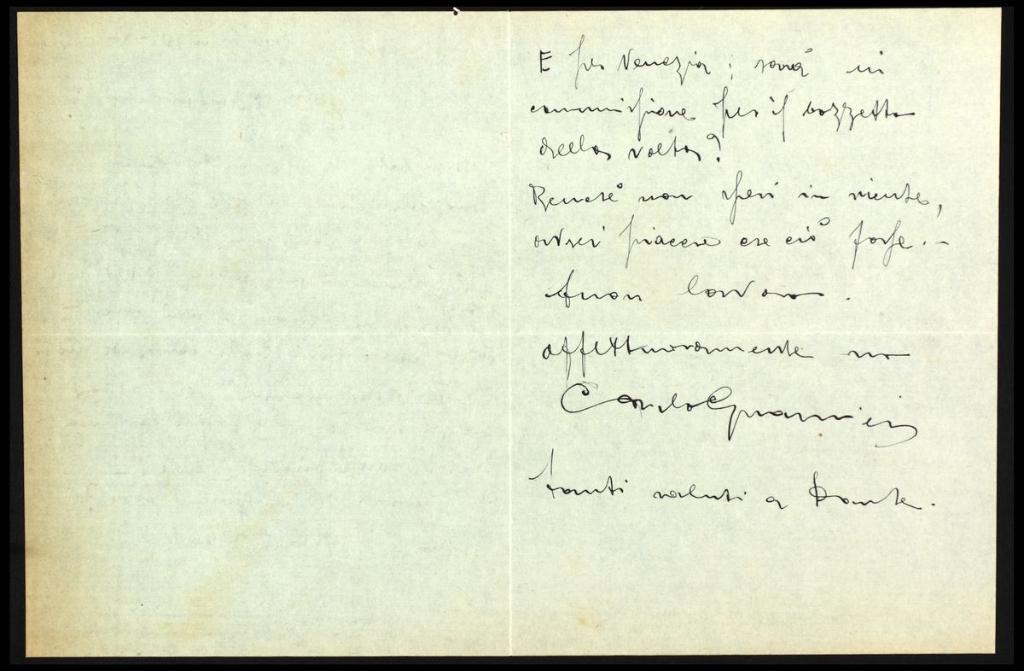 E per Venezia: sarà in
commissione per il bozzetto
della volta?
Benché non speri in niente,
avrei piacere che ciò fosse.-
buon lavoro.
affettuosamente suo
Carlo Guarnieri
tanti saluti a Dante.